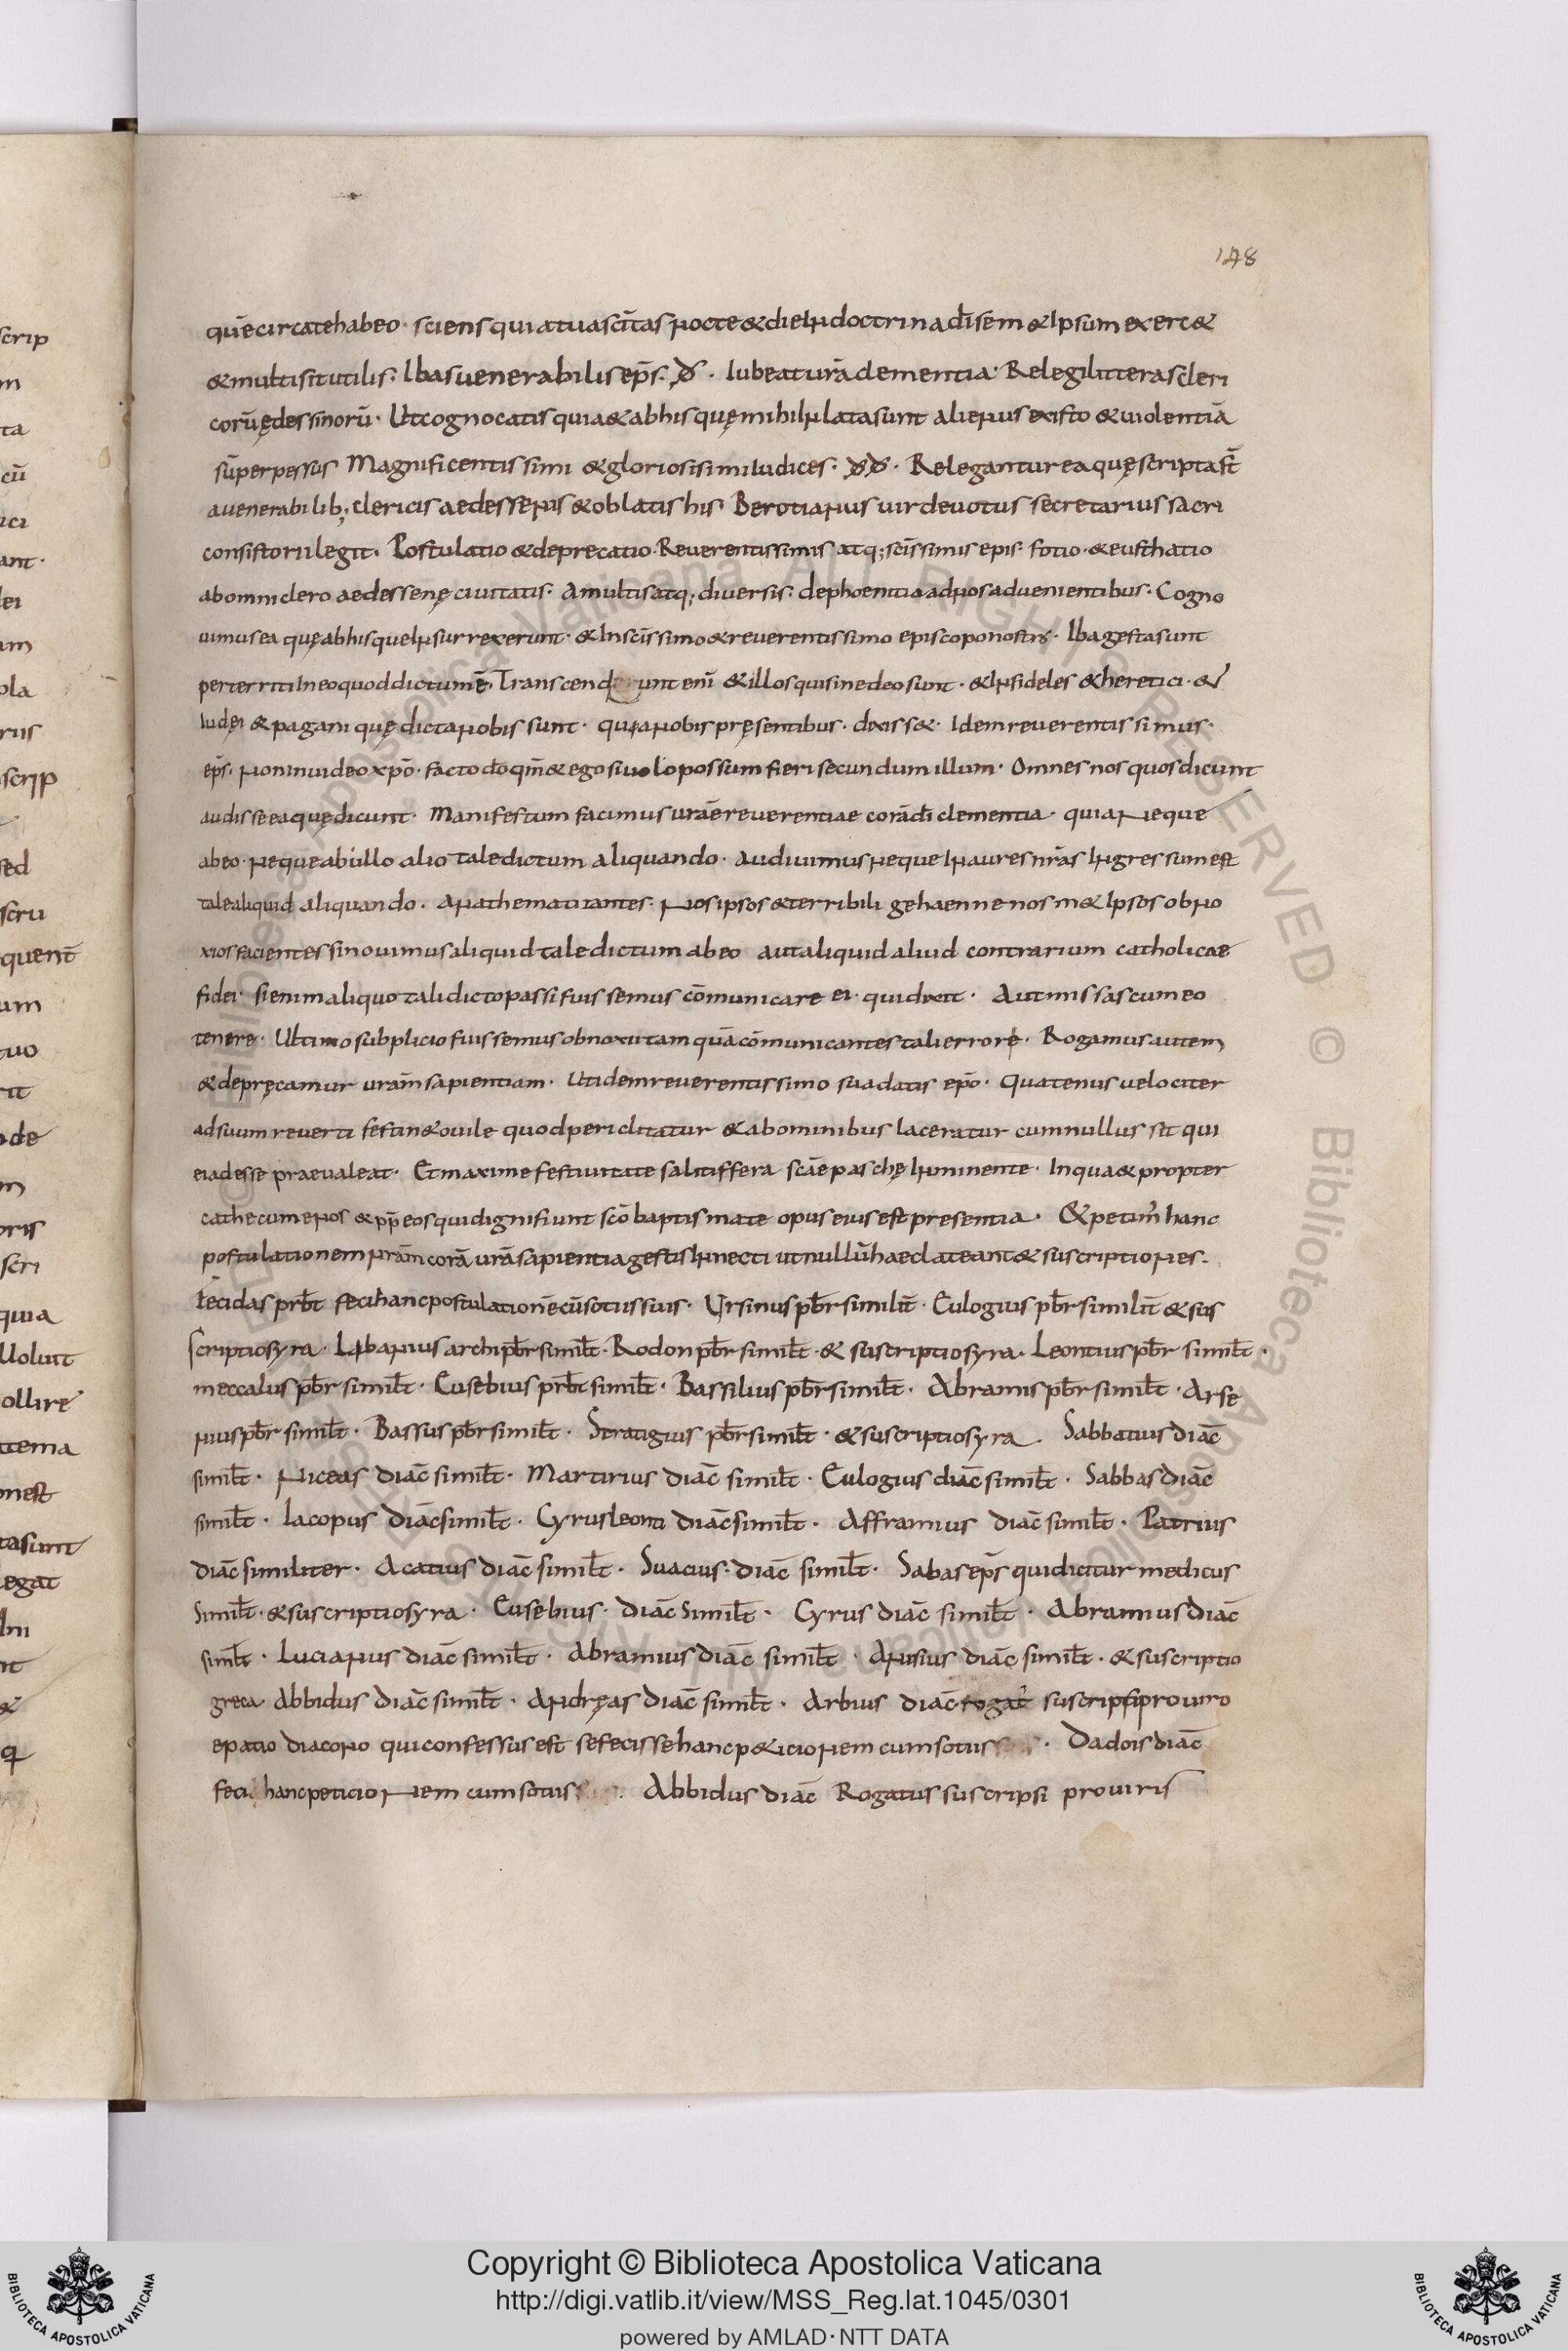 148
quē circa te habeo · sciens quia tua sc̄itas nocte & die in doctrina dī sem&ipsum exerc&
& multis it utilis · Ibas uenerabilis ep̄s · dx̄ · Iubeat ur̄a clementia · Relegi litteras cleri
corū ędessinorū · Ut cognocatis quia & ab his quę mihi inlata sunt alienus existo & uiolentiā
sū perpessus Magnificentissimi & gloriosisimi iudices · dx̄ dx̄ · Relegantur ea quę scripta st̄
a uenerabilib; clericis aedessenis & oblatis his Berotianus uir deuotus secretarius sacri
consistorii legit · Postulatio & deprecatio · Reuerentissimis atq; sc̄issimis epis · fotio · & eusthatio
ab omni clero aedessenę ciuitatis · A multis atq; diuersis · de phoenitia ad nos aduenientibus · Cogno
uimus ea quę ab hisque insurrexerunt · & in sc̄issimo & reuerentissimo episcopo nostro · Iba gesta sunt
perterriti in eo quod dictum ē · Transcenderunt enī & illos qui sine deo sunt · & infideles & heretici · &
iudęi & pagani quę dicta nobis sunt · quia nobis pręsentibus · dixiss& · Idem reuerentissimus ·
ep̄s · non inuideo xp̄o · facto dō qm̄ & ego si uolo possum fieri secundum illum · Omnes nos quos dicunt
audisse ea quę dicunt · Manifestum facimus ur̄ae reuerentiae corā dī clementia · quia neque
ab eo · neque ab ullo alio tale dictum aliquando · audiuimus neque in aures nr̄as ingressum est
tale aliquid aliquando · anathematizantes · nos ipsos & terribili gehaenne nosm&ipsos obno
xios facientes si nouimus aliquid tale dictum ab eo aut aliquid aliud contrarium catholicae
fidei · si enim aliquo tali dicto passi fuissemus cōmunicare ei · qui dixit · Aut missas cum eo
tenere · Ultimo subplicio fuissemus obnoxii tam quā cōmunicantes tali errore · Rogamus autem
& depręcamur uram̄ sapientiam · Uti dem reuerentissimo suadatis ep̄o · Quatenus uelociter
ad suum reuerti festin& ouile quod periclitatur & ab ominibus laceratur cum nullus sit qui
ei adesse praeualeat · Et maxime festiuitate salutiffera sc̄ae paschę inminente · In qua & propter
cathecumenos & pp̄ eos qui digni fiunt sc̄o baptismate opus eius est presentia · & petim̄ hanc
postulationem nr̄am corā ur̄a sapientia gestis innecti ut nullū haec lateant & suscriptiones ·
fecidas prb̄t feci hanc postulationē cū sotus suis · Ursinus pb̄r similit̄ · Eulogius pb̄r similit̄ & sus
scriptio syra · Libanius archipb̄r simil̄t · Rodon pb̄r simil̄t · & suscriptio syra · Leontius pb̄r simil̄t ·
meccalus pb̄r simil̄t · Eusebius prb̄t simil̄t · Bassilius pb̄r simil̄t · Abramis pb̄r simil̄t · Arse
nius pb̄r simil̄t · Bassus pb̄r simil̄t · Stratigius pb̄r simil̄t · & suscriptio syra · Sabbatius diac̄
simil̄t · Niceas diac̄ simil̄t · Martirius diac̄ simil̄t · Eulogius diac̄ simil̄t · Sabbas diac̄
simil̄t · Iacopus diac̄ simil̄t · Cyrus leonti diac̄ simil̄t · Afframius diac̄ simil̄t · Patrius
diac̄ similiter · Acatius diac̄ simil̄t · Suacius · diac̄ simil̄t · Sabas ep̄s qui dicitur medicus
simil̄t · & suscriptio syra · Eusebius · diac̄ simil̄t · Cyrus diac̄ simil̄t · Abramius diac̄
simil̄t · Lucianus diac̄ simil̄t · Abramius diac̄ simil̄t · Anisius diac̄ simil̄t · & suscriptio
greca Abbidus diac̄ simil̄t · Andręas diac̄ simil̄t · Arbius diac̄ rogat suscripsi pro uiro
epatio diacono qui confessus est se fecisse hanc p&icionem cum sotus · Dadois diac̄
feci hanc peticionem cum sotus · Abbidus diac̄ Rogatus suscripsi pro uiris
Copyright © Biblioteca Apostolica Vaticana
http://digi.vatlib.it/view/MSS_Reg.lat.1045/0301
powered by AMLAD·NTT DATA